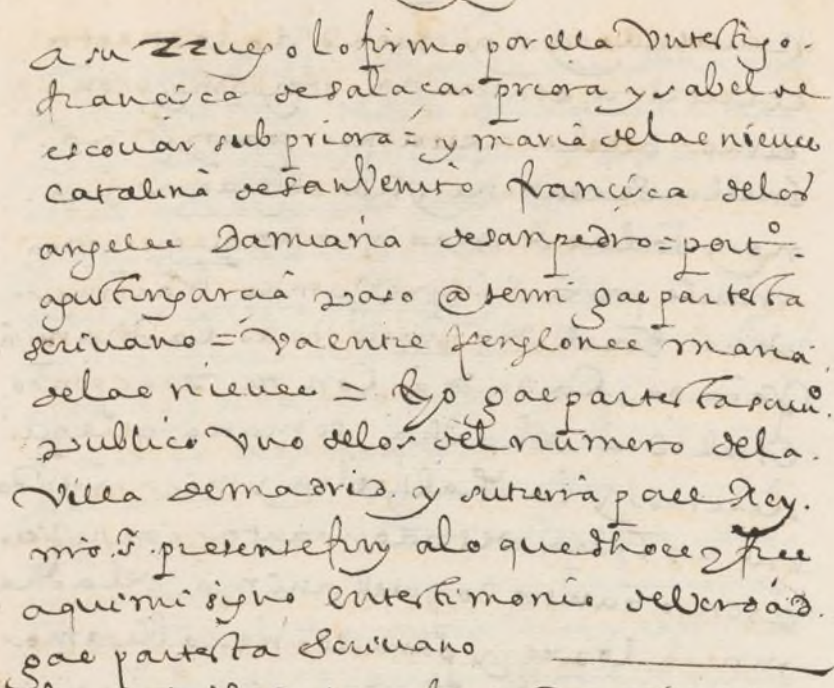 a su rruego lo firmo por ella Vn testigo.
francisca de salaçar priora ysabel de
escouar subpriora = y maria de las nieues
catalina de san Venito francisca de los
angeles Damiana de san pedro = por t.º
agustin garcia passo ante mi gas par testa
scriuano = Va entre Renglones maria
de las nieues = E yo gas par testa scriu.º
publico Vno de los del numero de la
Villa de madrid y su tierra por el Rey
nr̃o s.r presente fuy a lo que dho es y fize
aqui mi signo en testimonio de Verdad.
gas par testa Scriuano